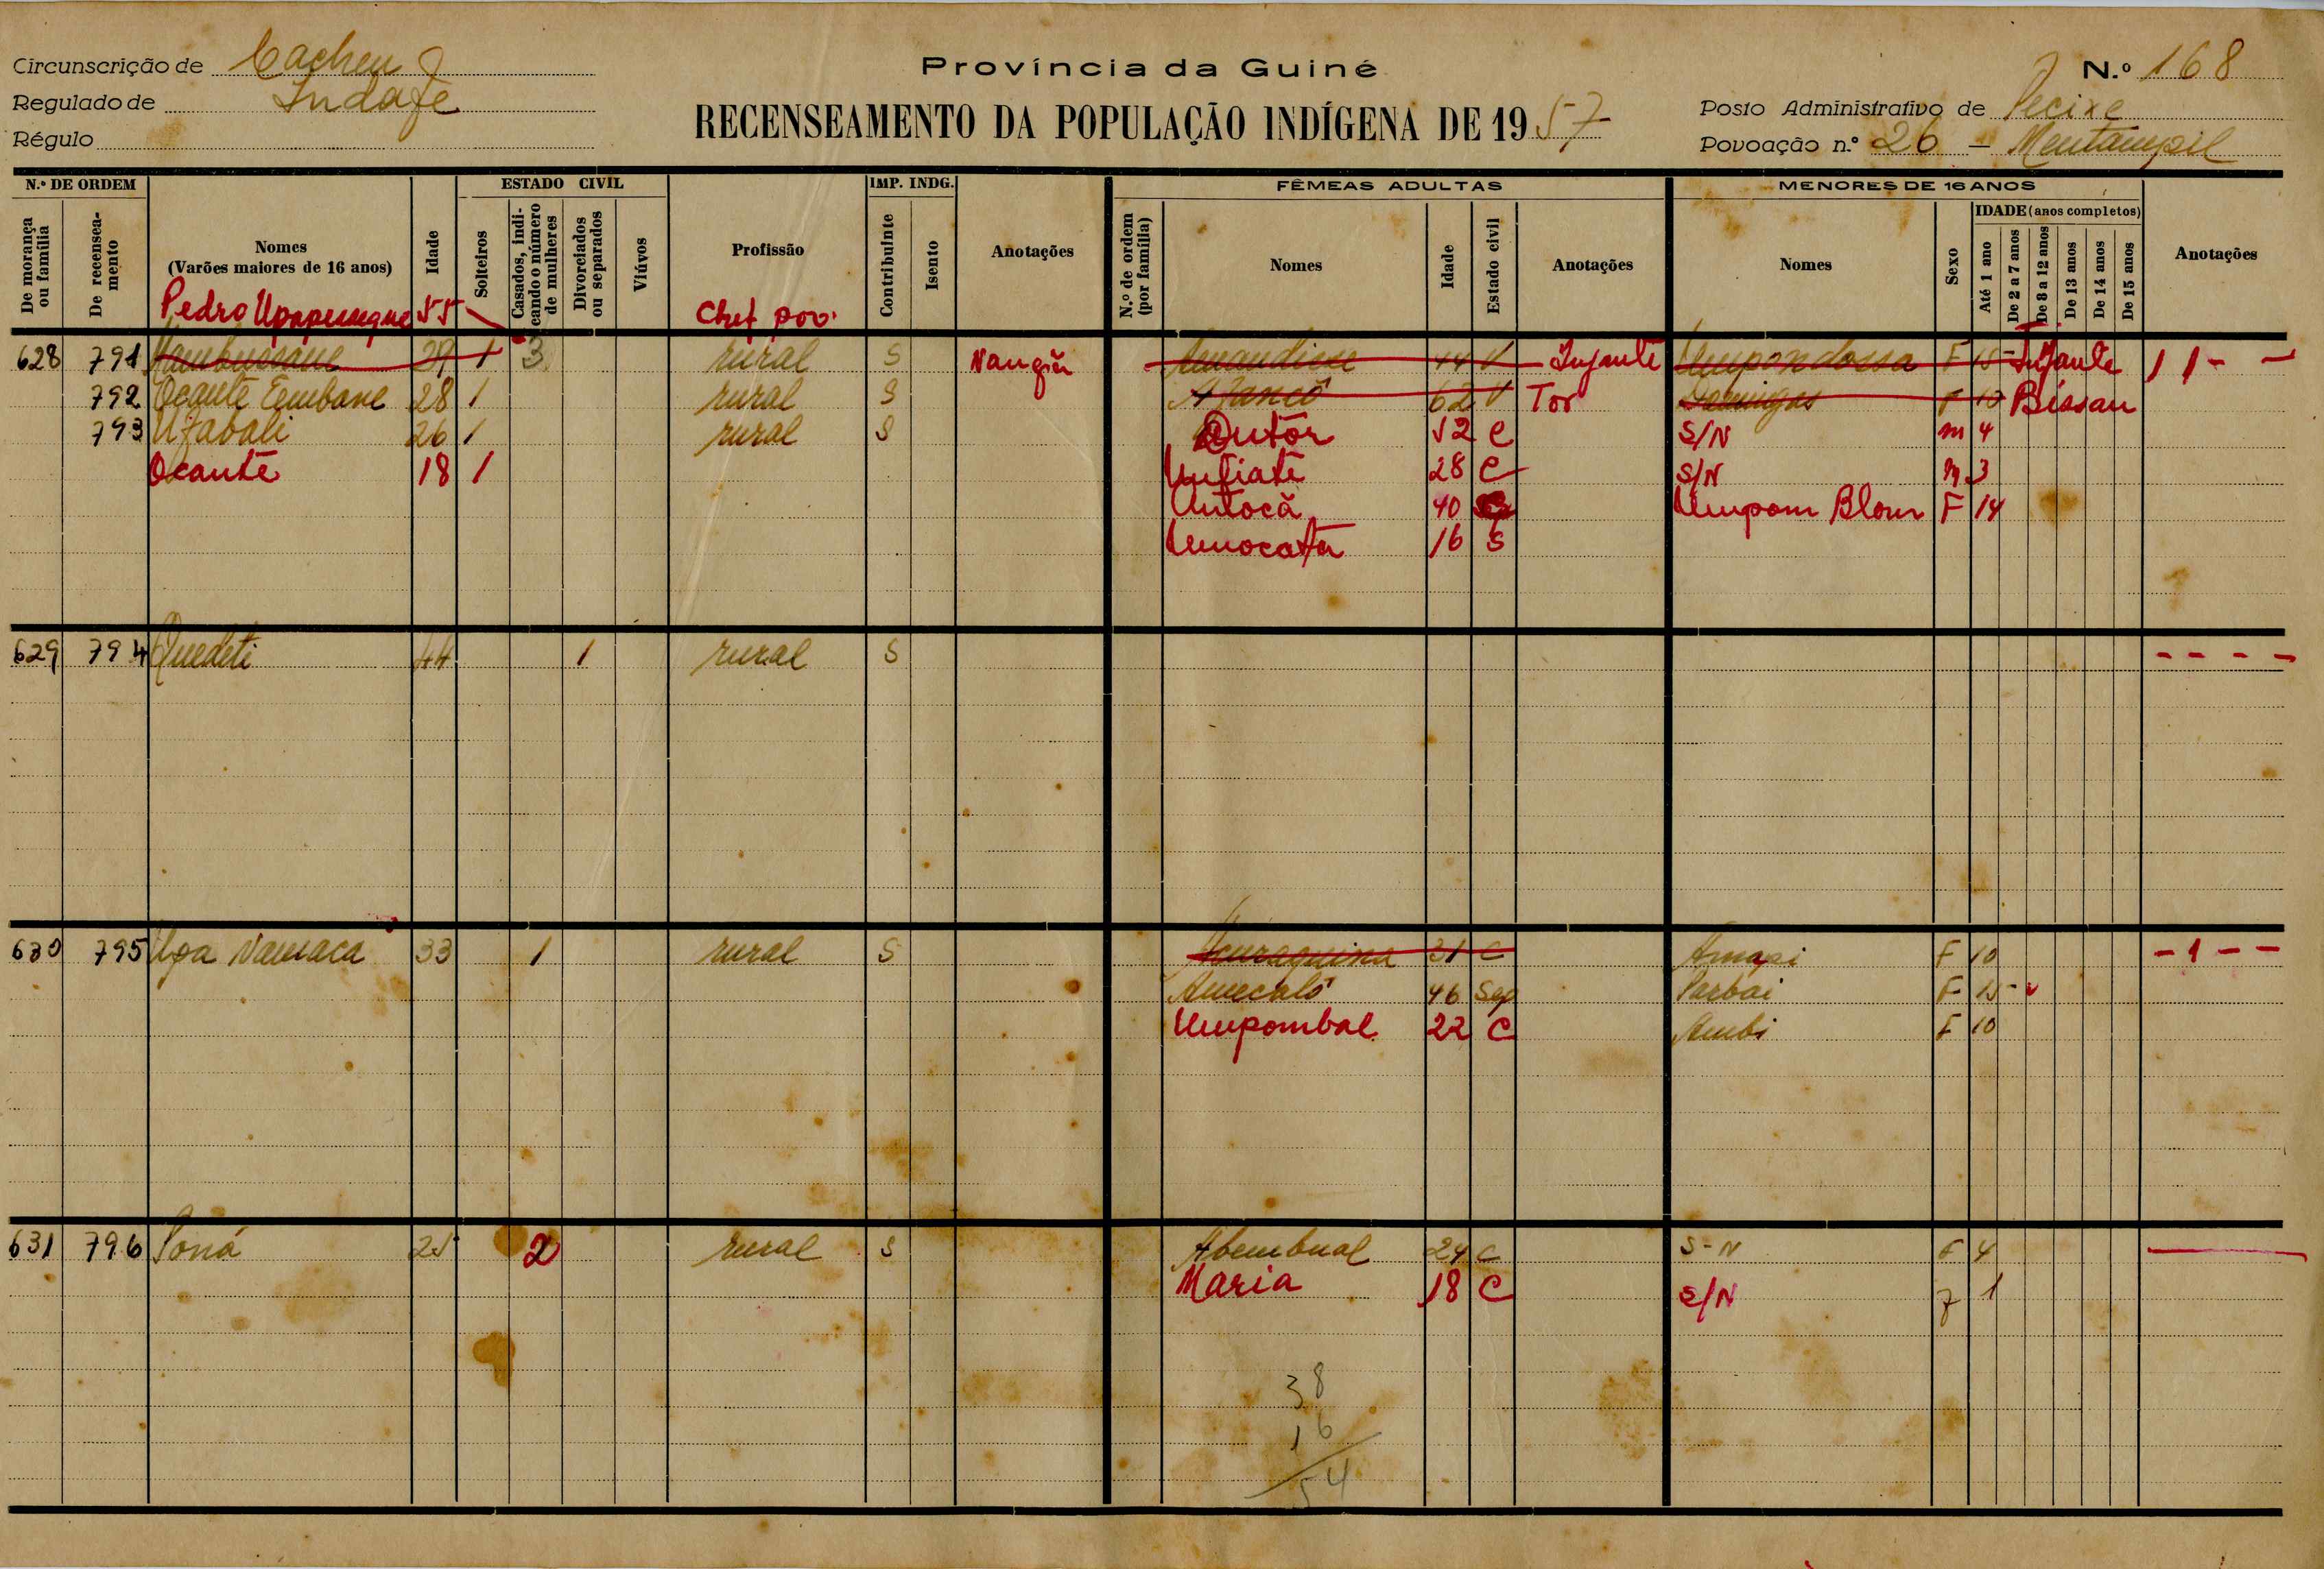 Circunscrição de Cacheu
Província da Guiné
N.º 168
Regulado de Indafe
RECENSEAMENTO DA POPULAÇÃO INDÍGENA DE 1957
Posto Administrativo de Pecixe
Régulo
Povoação n.º 26 - Mentampil
N.º DE ORDEM
De morança ou família
De recenseamento
Nomes
(Varões maiores de 16 anos)
Idade
ESTADO CIVIL
Solteiros
Casados, indicando o número de mulheres
Divorciados ou separados
Viúvos
Profissão
IMP. INDG.
Contribuinte
Isento
Anotações
FÊMEAS ADULTAS
N.º de ordem (por família)
Nomes
Idade
Estado civil
Anotações
MENORES DE 16 ANOS
Nomes
Sexo
IDADE (anos completos)
Até 1 ano
De 2 a 7 anos
De 8 a 12 anos
De 13 anos
De 14 anos
De 15 anos
Anotações
Pedro 55 Chef pov.
628 791 29 1 3 rural S 44 V Infante F 15 Infante 1 1 - -
792 Ocante Embane 28 1 rural S 62 V Tor Domingas F 13 Bissau
793 26 1 rural S Dutor 52 C S/N m 4
Ocante 18 1 28 C S/N M 3
Untocã 40 F 14
16 S
629 794 Quedeti 44 1 rural S - - - -
630 795 Upa Namaca 33 1 rural S 31 C Amapi F 10 - 1 - -
Amecaló 46 Sep Parbai F 15 -
Umpombal 22 C Ambi F 10
631 796 Poná 25 2 rural S Abembual 24 C S-N F 4
Maria 18 C S/N F 1
38
16
54